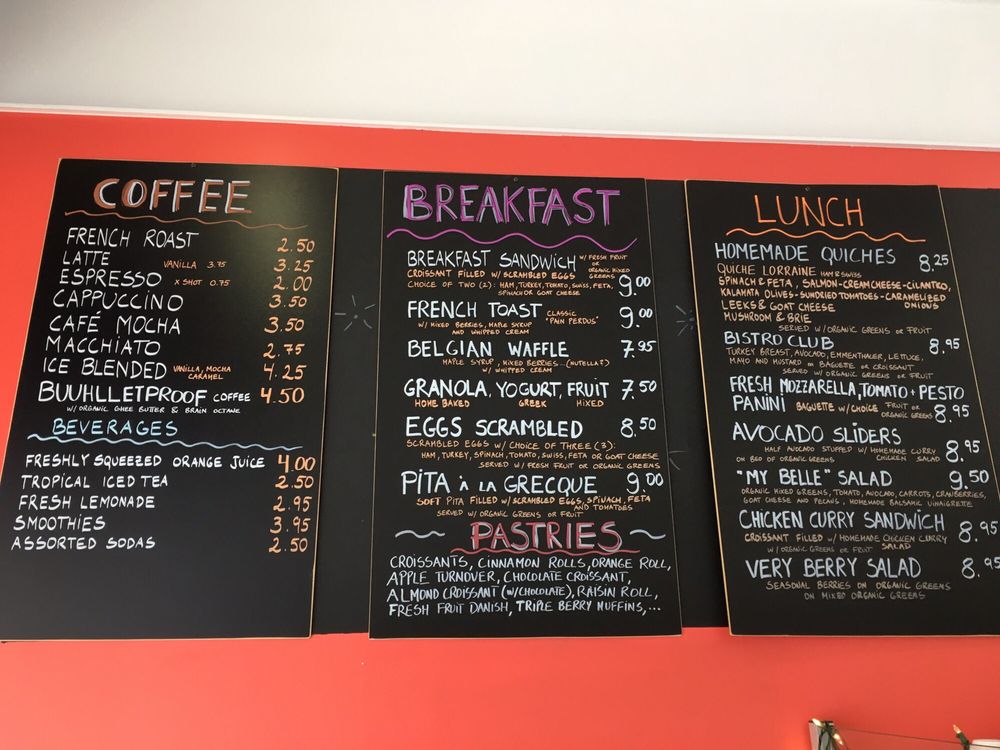 COFFEE
FRENCH ROAST 2.50
LATTE VANILLA 3.75 3.25
ESPRESSO X SHOT 0.75 2.00
CAPPUCCINO 3.50
CAFÉ MOCHA 3.50
MACCHIATO 2.75
ICE BLENDED VANILLA, MOCHA CARAMEL 4.25
BUUHLLETPROOF COFFEE 4.50
W/ORGANIC GHEE BUTTER & BRAIN OCTANE
BEVERAGES
FRESHLY SQUEEZED ORANGE JUICE 4.00
TROPICAL ICED TEA 2.50
FRESH LEMONADE 2.95
SMOOTHIES 3.95
ASSORTED SODAS 2.50
BREAKFAST
BREAKFAST SANDWICH W/FRESH FRUIT OR ORGANIC MIXED GREENS
CROISSANT FILLED W/ SCRAMBLED EGGS
CHOICE OF TWO (2): HAM, TURKEY, TOMATO, SWISS, FETA, 9.00
SPINACH OR GOAT CHEESE
FRENCH TOAST CLASSIC "PAIN PERDUS" 9.00
W/ MIXED BERRIES, MAPLE SYRUP
AND WHIPPED CREAM
BELGIAN WAFFLE 7.95
MAPLE SYRUP, MIXED BERRIES... (NUTELLA?)
W/ WHIPPED CREAM
GRANOLA, YOGURT, FRUIT 7.50
HOME BAKED GREEK MIXED
EGGS SCRAMBLED 8.50
SCRAMBLED EGGS W/ CHOICE OF THREE (3):
HAM, TURKEY, SPINACH, TOMATO, SWISS, FETA OR GOAT CHEESE
SERVED W/ FRESH FRUIT OR ORGANIC GREENS
PITA à LA GRECQUE 9.00
SOFT PITA FILLED W/ SCRAMBLED EGGS, SPINACH, FETA
AND TOMATOES
SERVED W/ ORGANIC GREENS OR FRUIT
PASTRIES
CROISSANTS, CINNAMON ROLLS, ORANGE ROLL,
APPLE TURNOVER, CHOCOLATE CROISSANT,
ALMOND CROISSANT (W/CHOCOLATE), RAISIN ROLL,
FRESH FRUIT DANISH, TRIPLE BERRY MUFFINS,...
LUNCH
HOMEMADE QUICHES 8.25
QUICHE LORRAINE HAM & SWISS
SPINACH & FETA, SALMON-CREAM CHEESE-CILANTRO,
KALAMATA OLIVES-SUNDRIED TOMATOES-CARAMELIZED ONIONS
LEEKS & GOAT CHEESE
MUSHROOM & BRIE
SERVED W/ORGANIC GREENS OR FRUIT
BISTRO CLUB 8.95
TURKEY BREAST, AVOCADO, EMMENTHALER, LETTUCE,
MAYO AND MUSTARD ON BAGUETTE OR CROISSANT
SERVED W/ ORGANIC GREENS OR FRUIT
FRESH MOZZARELLA, TOMATO + PESTO
PANINI BAGUETTE W/CHOICE FRUIT OR ORGANIC GREENS 8.95
AVOCADO SLIDERS 8.95
HALF AVOCADO STUFFED W/ HOMEMADE CURRY
CHICKEN SALAD
ON BED OF ORGANIC GREENS
"MY BELLE" SALAD 9.50
ORGANIC MIXED GREENS, TOMATO, AVOCADO, CARROTS, CRANBERRIES,
GOAT CHEESE AND PECANS, HOMEMADE BALSAMIC VINAIGRETTE
CHICKEN CURRY SANDWICH 8.95
CROISSANT FILLED W/ HOMEMADE CHICKEN CURRY
SALAD
W/ ORGANIC GREENS OR FRUIT
VERY BERRY SALAD 8.95
SEASONAL BERRIES ON ORGANIC GREENS
ON MIXED ORGANIC GREENS